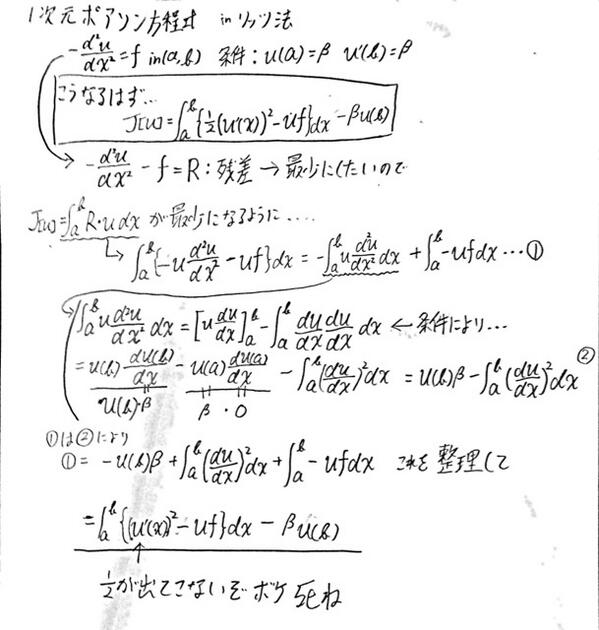 1次元ポアソン方程式 in リッツ法
-d²u/dx² = f in(a,b) 条件：u(a)=β u'(b)=β
こうなるはず…
J[u]=∫_a^b{1/2(u'(x))²-uf}dx-βu(b)
-d²u/dx² - f = R：残差 → 最少にしたいので
J[u]=∫_a^b R・u dx が最少になるように‥‥
∫_a^b{-u d²u/dx² - uf}dx = -∫_a^b u d²u/dx² dx + ∫_a^b -uf dx …①
∫_a^b u d²u/dx² dx = [u du/dx]_a^b - ∫_a^b du/dx du/dx dx ← 条件により…
= u(b) du(b)/dx - u(a) du(a)/dx - ∫_a^b (du/dx)² dx = u(b)β - ∫_a^b (du/dx)² dx ②
u(b)・β β・0
①は②により
① = -u(b)β + ∫_a^b (du/dx)² dx + ∫_a^b - uf dx これを整理して
= ∫_a^b {(u'(x))² - uf}dx - βu(b)
1/2が出てこないぞ ボケ 死ね